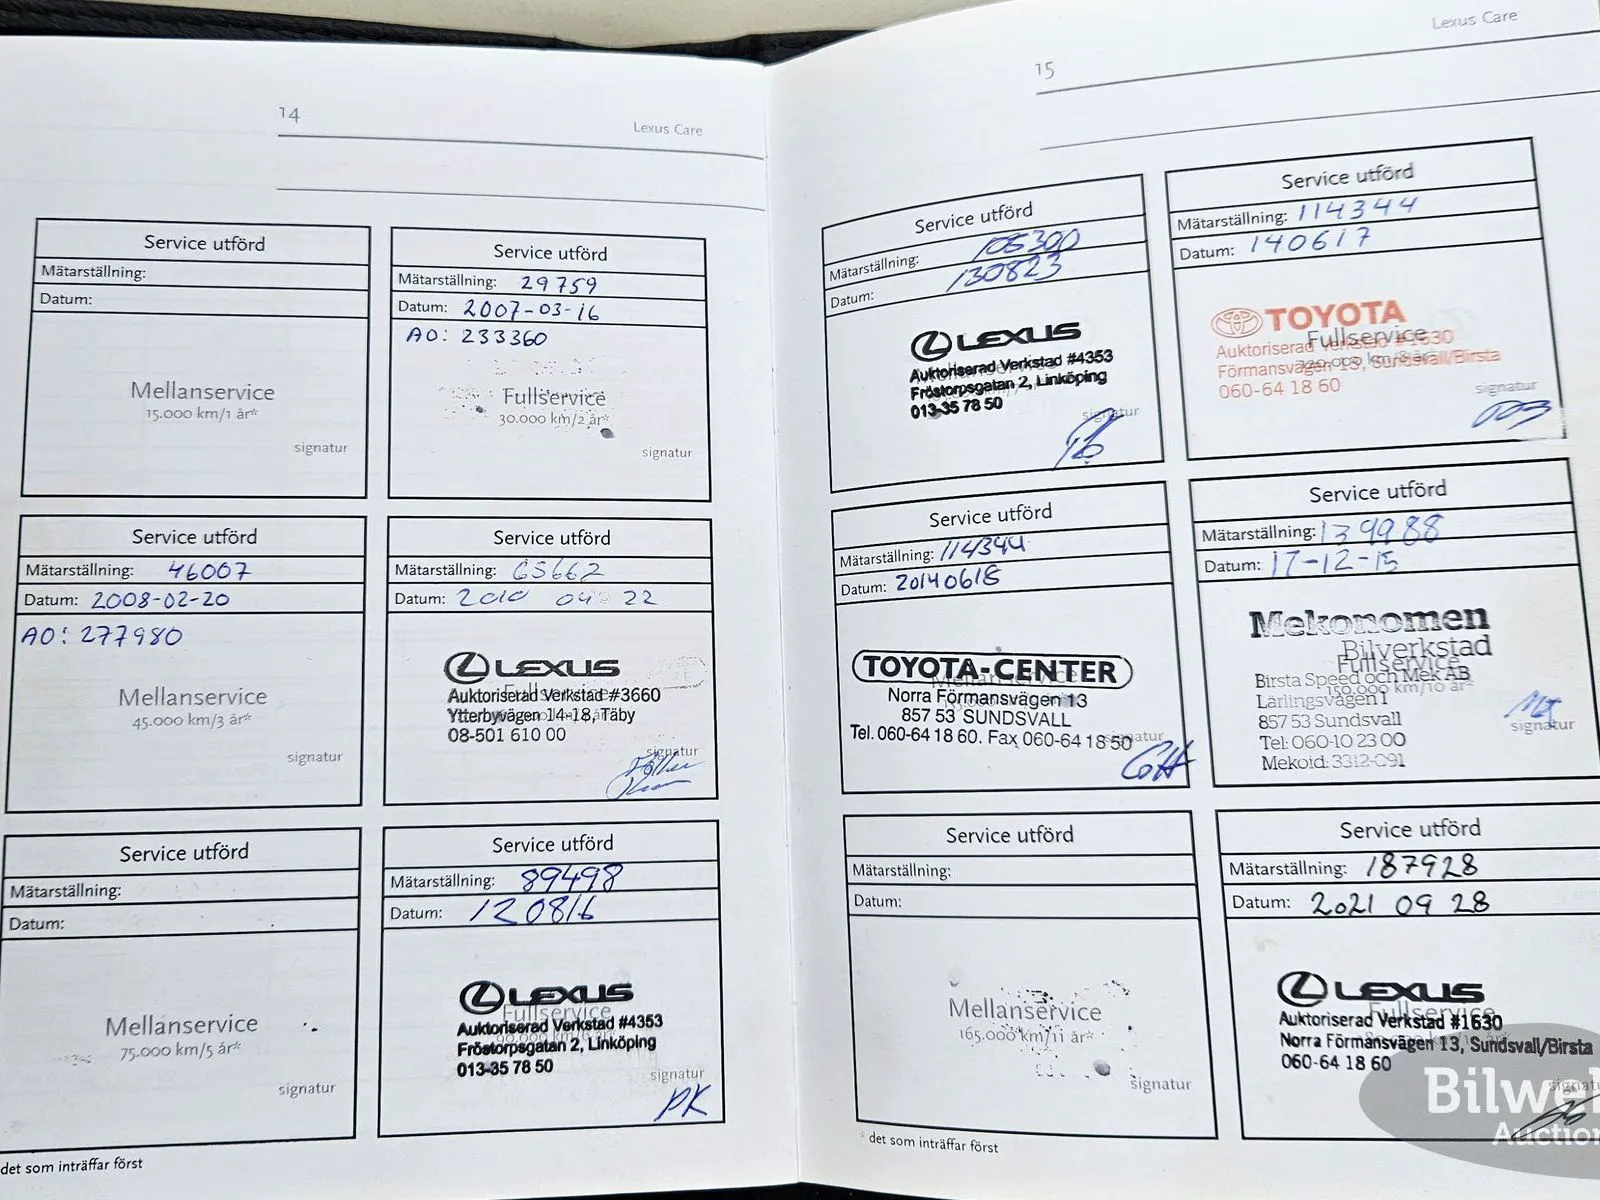 14
Lexus Care
Service utförd
Mätarställning:
Datum:
Mellanservice
15.000 km/1 år*
signatur
Service utförd
Mätarställning: 29759
Datum: 2007-03-16
AO: 233360
Fullservice
30.000 km/2 år*
signatur
Service utförd
Mätarställning: 46007
Datum: 2008-02-20
AO: 277980
Mellanservice
45.000 km/3 år*
signatur
Service utförd
Mätarställning: 65662
Datum: 2010 04 22
LEXUS
Auktoriserad Verkstad #3660
Ytterbyvägen 14-18, Täby
08-501 610 00
signatur
Service utförd
Mätarställning:
Datum:
Mellanservice
75.000 km/5 år*
signatur
Service utförd
Mätarställning: 89498
Datum: 120816
LEXUS
Fullservice
Auktoriserad Verkstad #4353
Fröstorpsgatan 2, Linköping
013-35 78 50
signatur
PK
det som inträffar först
15
Lexus Care
Service utförd
Mätarställning: 105300
Datum: 130823
LEXUS
Auktoriserad Verkstad #4353
Fröstorpsgatan 2, Linköping
013-35 78 50
signatur
Service utförd
Mätarställning: 114344
Datum: 140617
TOYOTA
Fullservice
Auktoriserad Verkstad #1630
Förmansvägen 13, Sundsvall/Birsta
060-64 18 60
signatur
Service utförd
Mätarställning: 114344
Datum: 20140618
TOYOTA-CENTER
Norra Förmansvägen 13
857 53 SUNDSVALL
Tel. 060-64 18 60. Fax 060-64 18 50
signatur
Service utförd
Mätarställning: 139988
Datum: 17-12-15
Mekonomen
Bilverkstad
Fullservice
Birsta Speed och Mek AB
150.000 km/10 år*
Lärlingsvägen 1
857 53 Sundsvall
Tel: 060-10 23 00
Mekoid: 3312-091
signatur
Service utförd
Mätarställning:
Datum:
Mellanservice
165.000 km/11 år*
signatur
Service utförd
Mätarställning: 187928
Datum: 2021 09 28
LEXUS
Fullservice
Auktoriserad Verkstad #1630
Norra Förmansvägen 13, Sundsvall/Birsta
060-64 18 60
* det som inträffar först